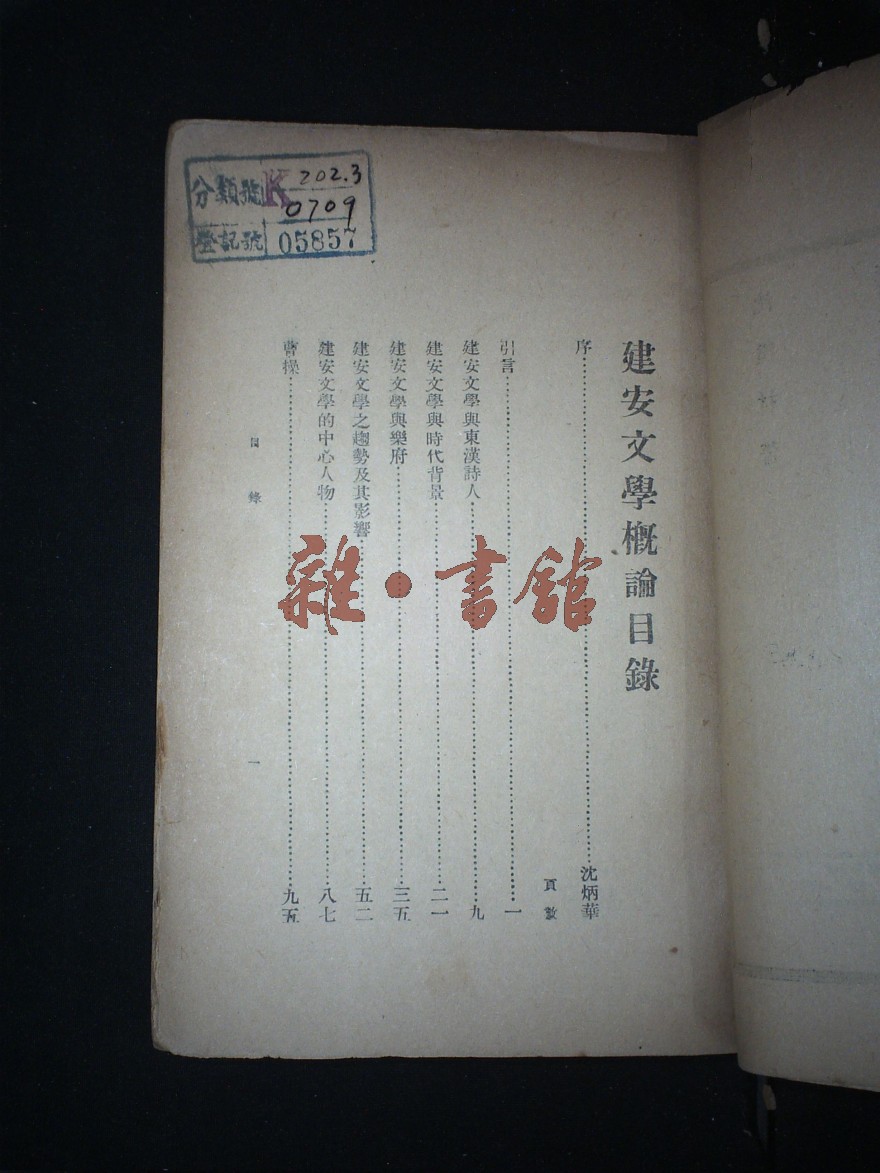 分類號 K 202.3
0709
登記號 05857
建安文學概論目錄
序……沈炳華
頁數
引言……一
建安文學與東漢詩人……九
建安文學與時代背景……二一
建安文學與樂府……三五
建安文學之趨勢及其影響……五二
建安文學的中心人物……八七
曹操……九五
目錄
一
雜·書館